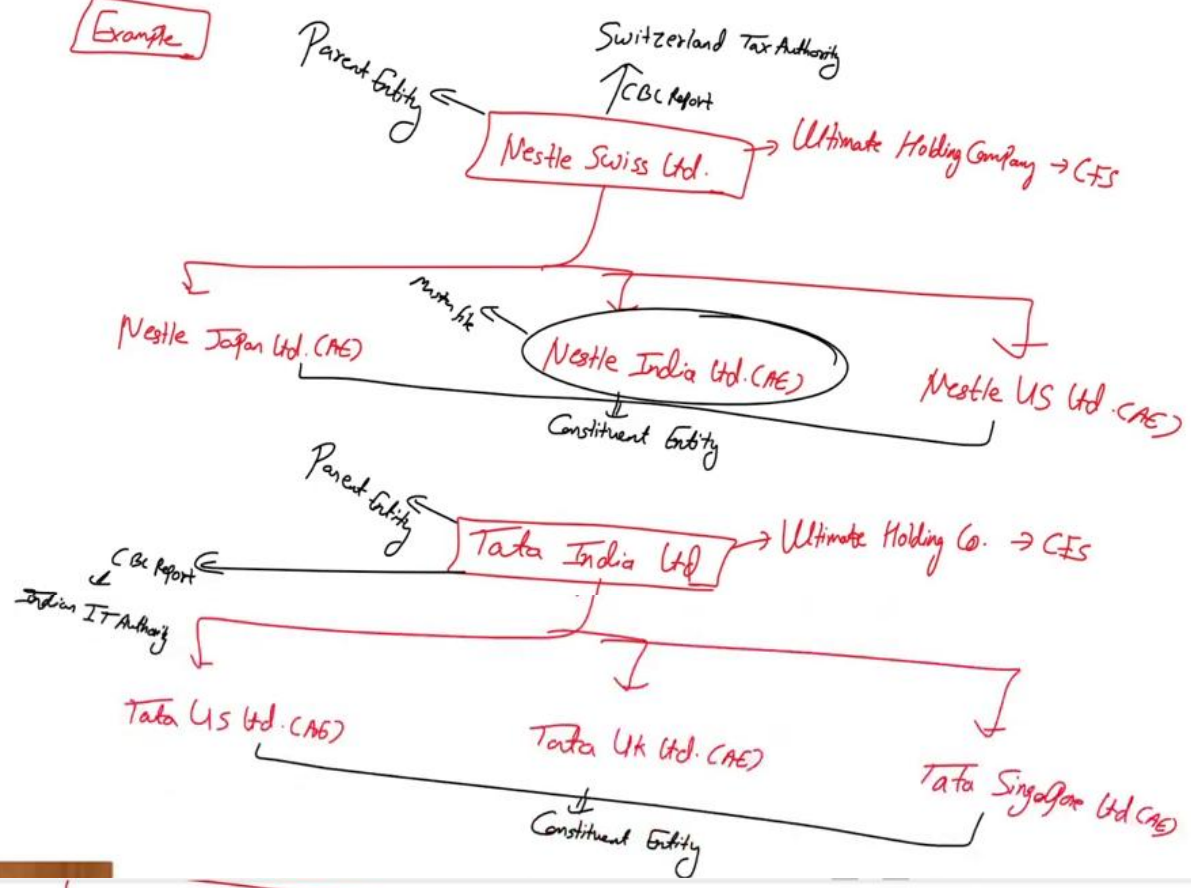 Example
Switzerland Tax Authority
Parent Entity
CBC Report
Nestle Swiss Ltd.
Ultimate Holding Company → CFS
Master file
Nestle Japan Ltd. (AE)
Nestle India Ltd. (AE)
Nestle US Ltd. (AE)
Constituent Entity
Parent Entity
Tata India Ltd
Ultimate Holding Co. → CFS
CBC Report
Indian IT Authority
Tata US Ltd. (AE)
Tata UK Ltd. (AE)
Tata Singapore Ltd (AE)
Constituent Entity